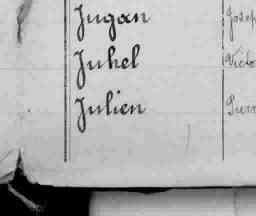 Jugan Josep
Juhel Victo
Julien Pierr